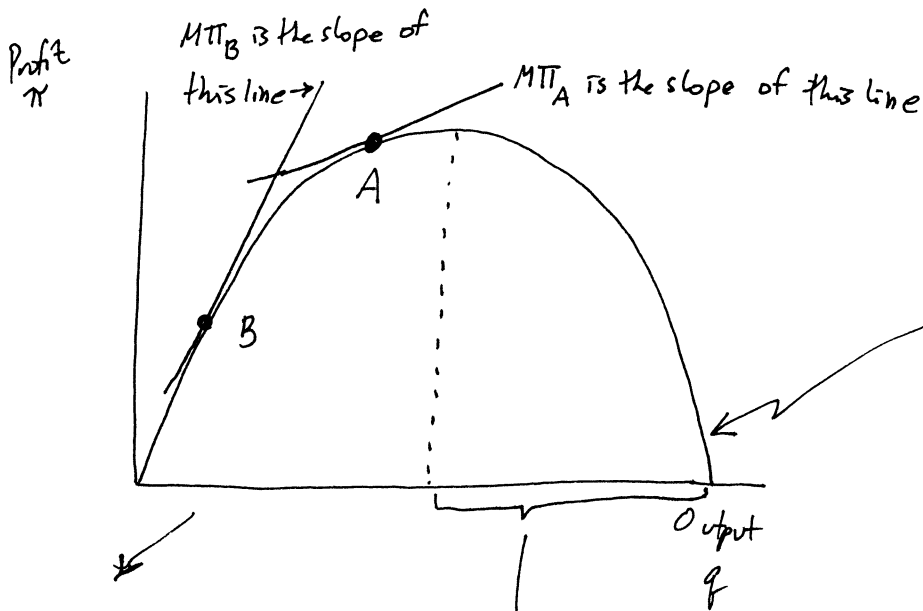 Profit
π
MΠ_B is the slope of
this line→
MΠ_A is the slope of this line
A
B
Output
q